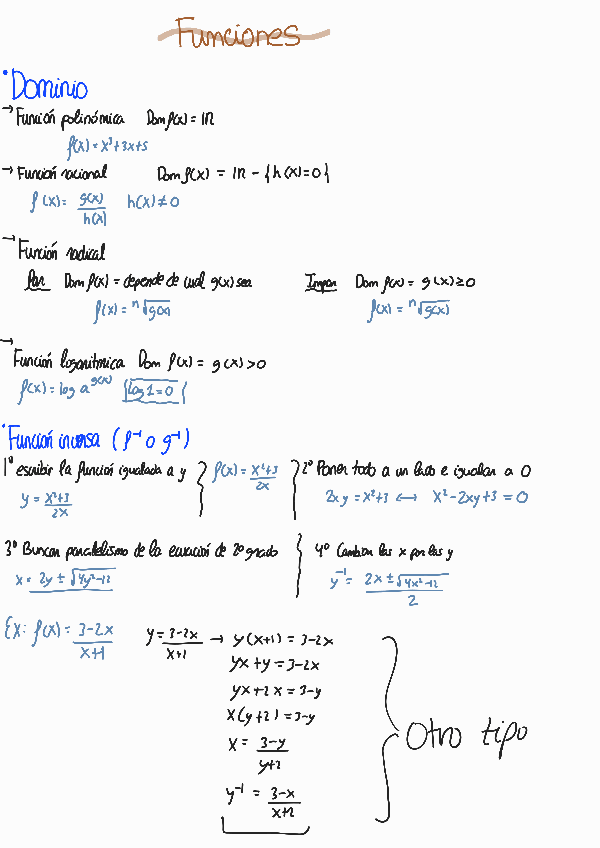 Funciones
• Dominio
→ Función polinómica Dom f(x) = IR
f(x) = x²+3x+5
→ Función racional Dom f(x) = IR - {h(x)=0}
f(x) = g(x)/h(x) h(x) ≠ 0
→ Función radical
Par Dom f(x) = depende de cual g(x) sea
Impar Dom f(x) = g(x) ≥ 0
f(x) = ⁿ√g(x)
f(x) = ⁿ√g(x)
→ Función logarítmica Dom f(x) = g(x) > 0
f(x) = log a^g(x) {log 1 = 0}
• Función inversa (f⁻¹ o g⁻¹)
1º escribir la función igualada a y } f(x) = x²+3/2x
y = x²+3/2x
2º Poner todo a un lado e igualar a 0
2xy = x²+3 ⟷ x²-2xy+3 = 0
3º Buscan paralelismo de la ecuación de 2º grado
x = 2y ± √4y²-12
4º Cambian las x por las y
y⁻¹ = 2x ± √4x²-12/2
Ex: f(x) = 3-2x/x+1
y = 3-2x/x+1 → y(x+1) = 3-2x
yx+y = 3-2x
yx+2x = 3-y
x(y+2) = 3-y
x = 3-y/y+2
y⁻¹ = 3-x/x+2
Otro tipo